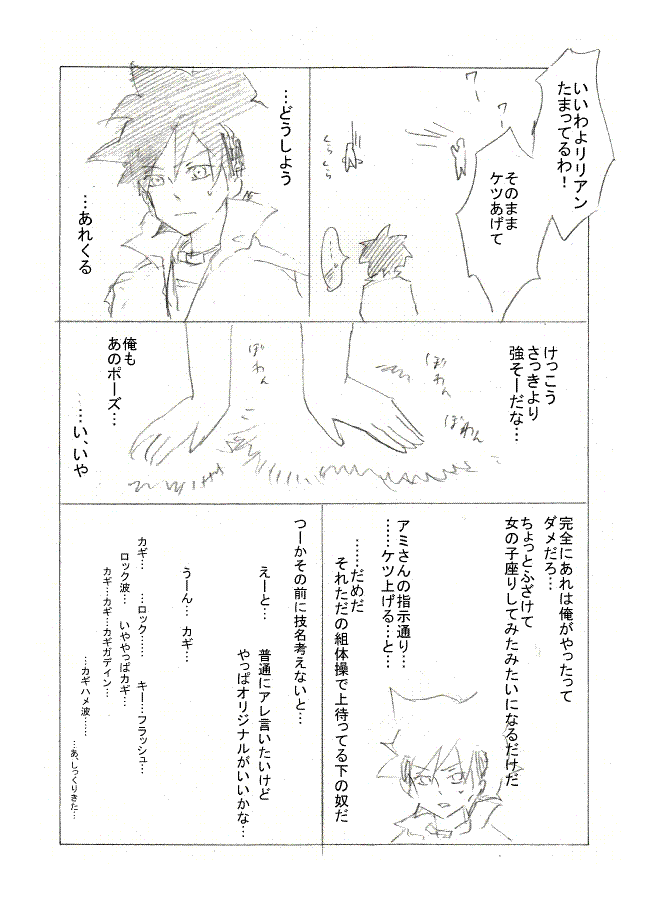 いいわよリリアン
たまってるわ！
そのまま
ケツあげて
ワー
ワー
くらくら
…どうしよう
…あれくる
けっこう
さっきより
強そーだな…
ぼわん
ぼわん
ぼわん
俺も
あのポーズ…
…い、いや
完全にあれは俺がやったって
ダメだろ…
ちょっとふざけて
女の子座りしてみたみたいになるだけだ
アミさんの指示通り…
……ケツ上げる…と…
……だめだ
それただの組体操で上待ってる下の奴だ
つーかその前に技名考えないと…
えーと… 普通にアレ言いたいけど
やっぱオリジナルがいいかな…
うーん… カギ…
カギ… …ロック…… キー…フラッシュ…
ロック波… いややっぱカギ…
カギ…カギ…カギガディン…
…カギハメ波……
…あ、しっくりきた…